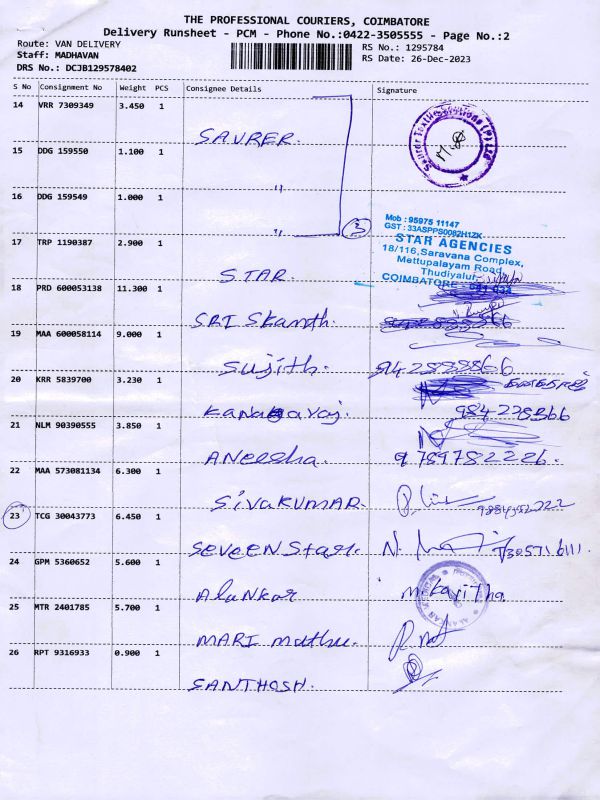 THE PROFESSIONAL COURIERS, COIMBATORE
Delivery Runsheet - PCM - Phone No.:0422-3505555 - Page No.:2
Route: VAN DELIVERY
RS No.: 1295784
Staff: MADHAVAN
RS Date: 26-Dec-2023
DRS No.: DCJB129578402
S No Consignment No Weight PCS Consignee Details Signature
14 VRR 7309349 3.450 1
SAURER
15 DDG 159550 1.100 1
"
16 DDG 159549 1.000 1
" 3
Mob : 95975 11147
GST : 33ASPPS0082H1ZK
STAR AGENCIES
18/116, Saravana Complex,
Mettupalayam Road,
Thudiyalur,
COIMBATORE - 641 034
17 TRP 1190387 2.900 1
STAR
18 PRD 600053138 11.300 1
SRI Skanth.
19 MAA 600058114 9.000 1
Sujith.
20 KRR 5839700 3.230 1
Kanagavaj.
21 NLM 90390555 3.850 1
ANeesha. 9789782226.
22 MAA 573081134 6.300 1
SIVAKUMAR.
23 TCG 30043773 6.450 1
SEVEEN Star.
24 GPM 5360652 5.600 1
Alankar M. Kavitha
25 MTR 2401785 5.700 1
MARI Muthu.
26 RPT 9316933 0.900 1
SANTHOSH.